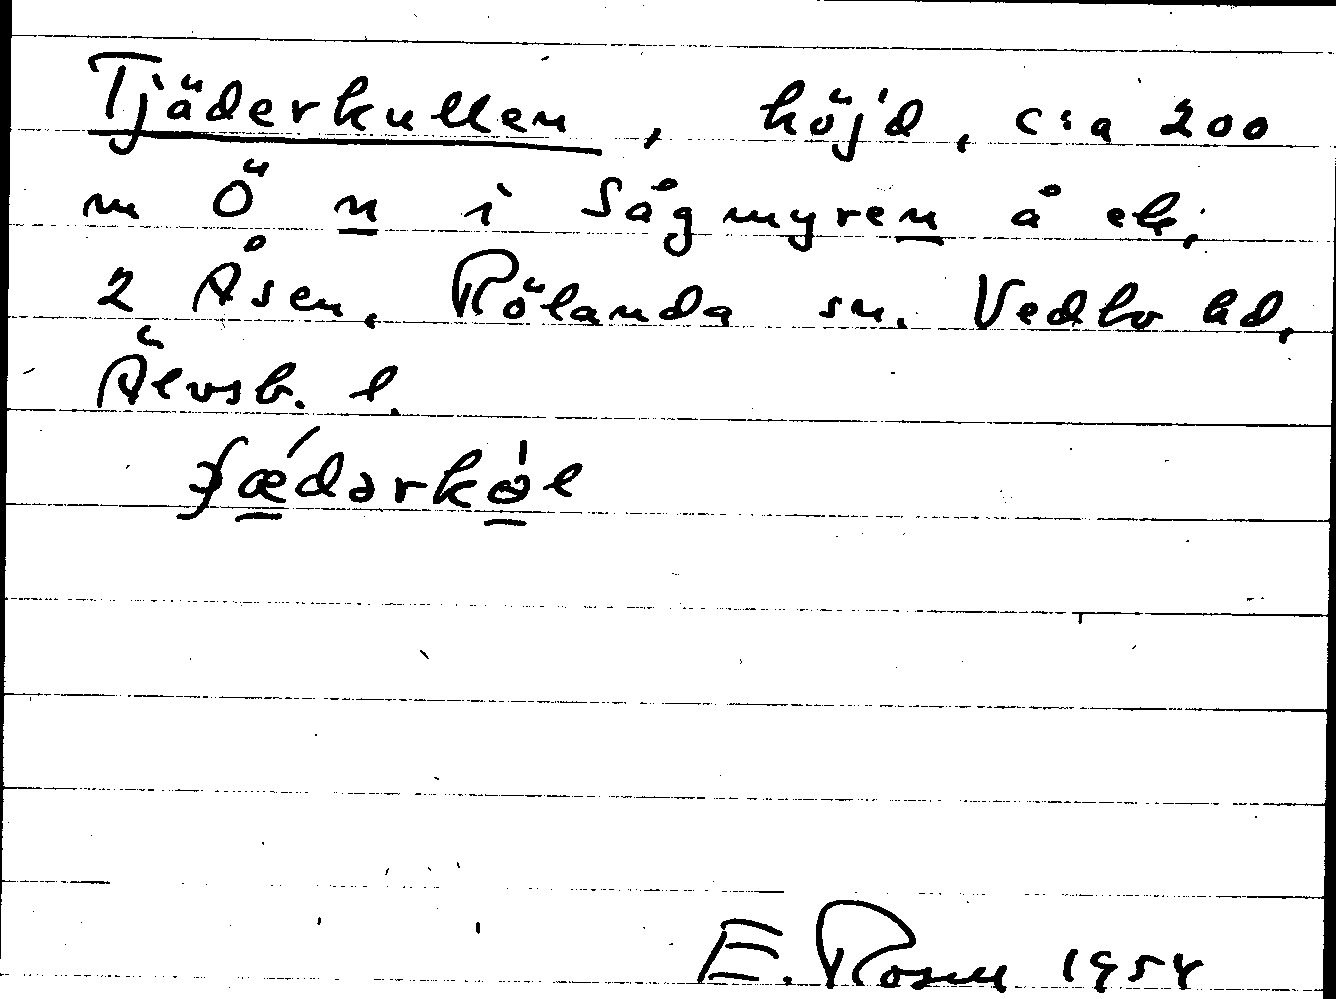 Tjäderkullen, höjd, c:a 200
m Ö n i Sågmyren å ek;
2 Åsen. Rölanda sn. Vedbo hd.
Älvsb. l.
E. Rosell 1954